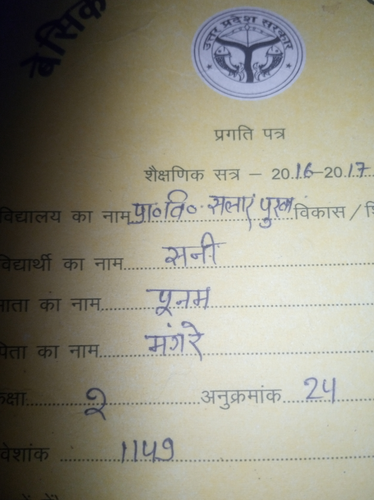 बेसिक
उत्तर प्रदेश सरकार
प्रगति पत्र
शैक्षणिक सत्र – 2016–2017
विद्यालय का नाम प्रा०वि० विकास / शि
विद्यार्थी का नाम सनी
माता का नाम पूनम
पिता का नाम मंगरे
कक्षा २ अनुक्रमांक 24
वेशांक 1149